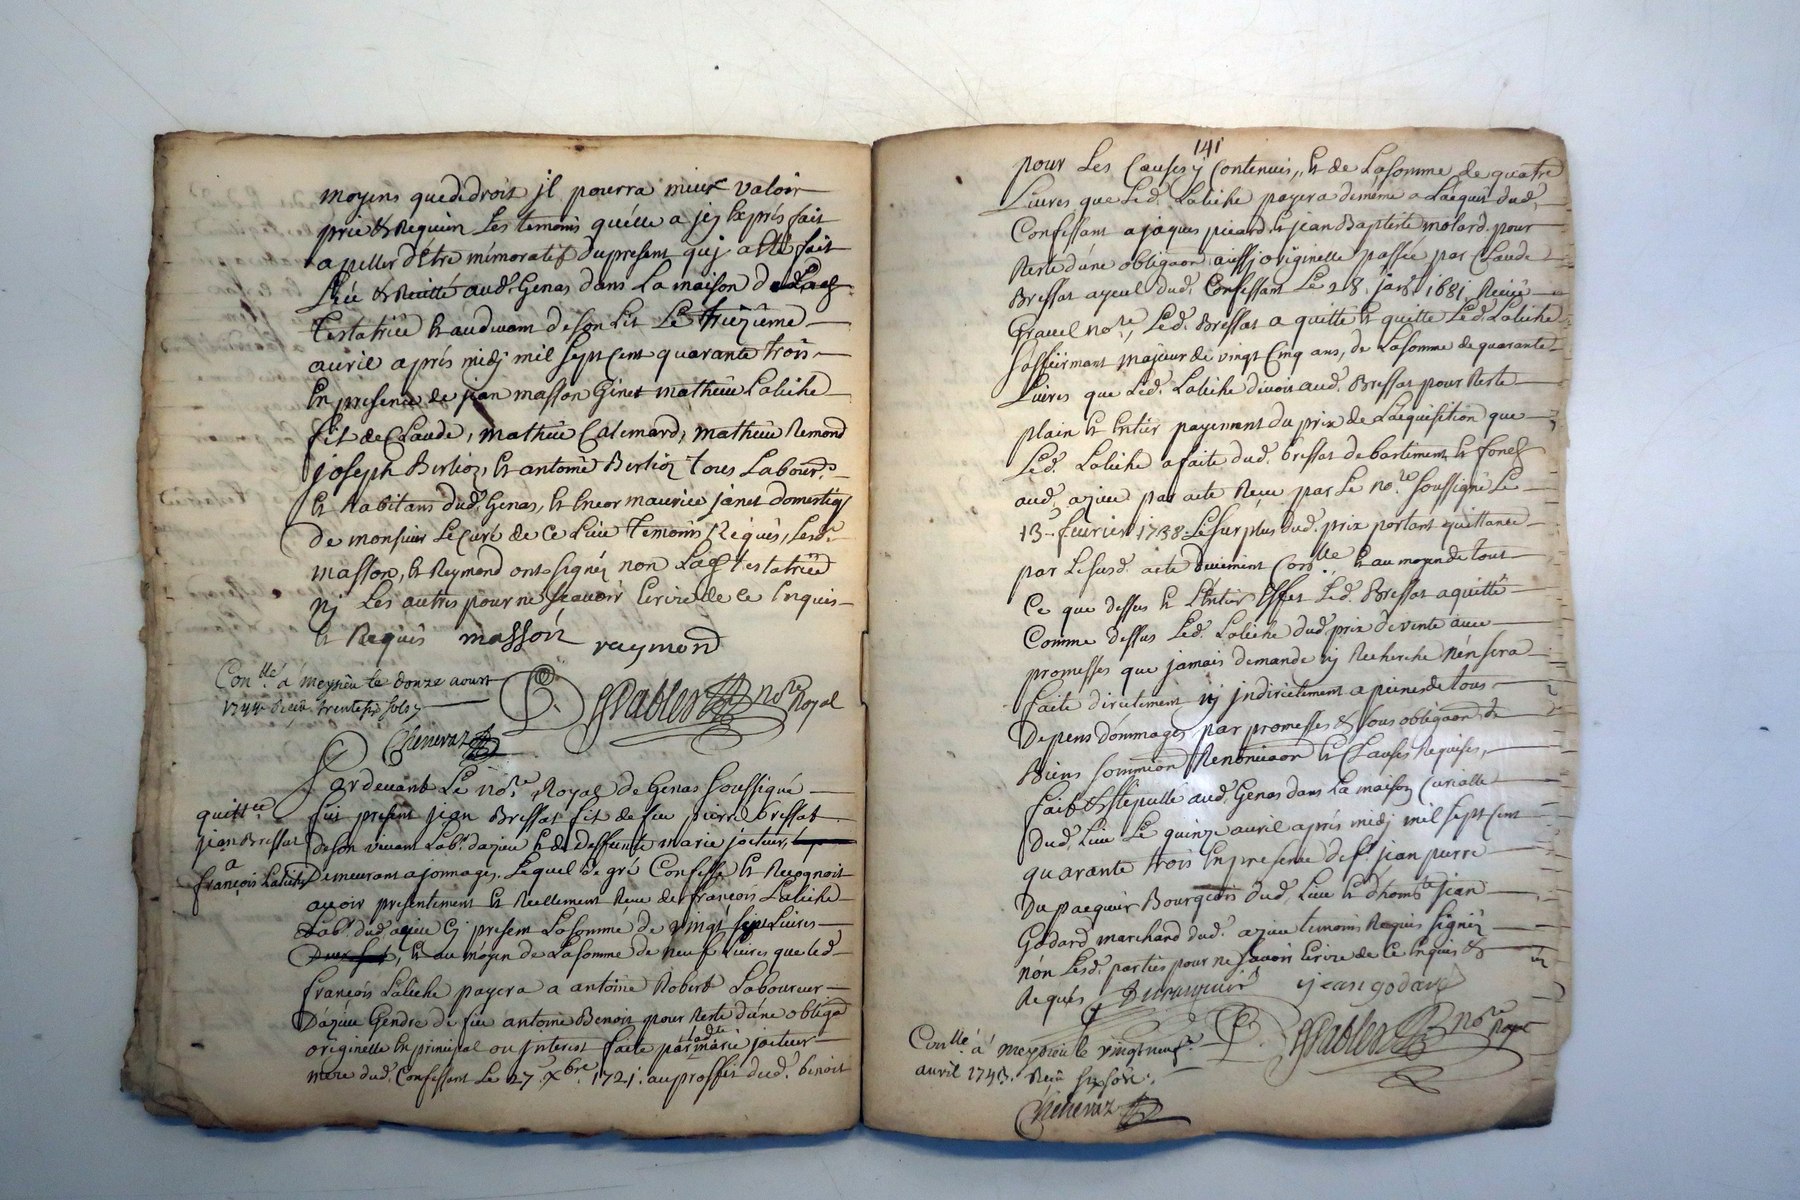 moyens que de droit jl pourra mieux valoir
prie & Requiert Les temoins quélle a jcy Exprés fait
apeller d'être mémoratifs du present qui a êté fait
Leü & Recitté aud. Genas dans La maison de Lad.
Testatrice Et audevant de son Lit Le treiziéme
avril aprés midj mil sept Cent quarante trois
En presence de jean masson Ginet mathieu Laliche
fils de Claude, mathieu Calemard, mathieu Remond
joseph Berlioz, Et antoine Berlioz tous Labour.rs
Et Habitans dud. Genas, Et Encor maurice janet domestiq
de monsieur Le Curé de Ce Lieu temoins Réquis, Lesd.
masson, Et Reymond ont signéz non Lad. testatrice
nj Les autres pour ne sçavoir Ecrire de Ce Enquis
Et Requis masson raymond
Con.llé á meyzieu le douze aoust
1744 Reçu trente six sols
Pabler No.re Royal
Chenevaz
Pardevant Le no.re Royal de Genas soussigné
quitt.ce
jean Bressat
a
françois Laliche
fut present jean Bressat fils de feu pierre bressat
de son vivant Lab.r dazieu Et de deffunte marie jocteur,
Demeurant a jonnages, Lequel de gré Confesse Et Recognoit
avoir presentement Et Reellement Reçu de françois Laliche
Lab.r dud. azieu Cj present La somme de vingt sept Livres
, Et au moyen de La somme de neuf Livres que led.
françois Laliche payera a antoine Robert Laboureur
D'azieu Gendre de feu antoine Benoit pour Reste d'une obligaõn
originelle En principal ou jnterest faite par lad.te marie jocteur
mere dud. Confessant Le 27 Xbre 1721. au proffit dud. benoit
141
pour Les Causes y Contenues, Et de La somme de quatre
Livres que Led. Laliche payera de meme a Láequit dud.
Confessant a jaques picard Et jean Baptiste molard pour
Reste d'une obligaõn aussj originelle passée par Claude
Bressat ayeul dud. Confessant Le 28. janv. 1681. Reçüe
Gravel no.re, Led. Bressat a quitté Et quitte Led. Laliche
s'affeirmant majeur de vingt Cinq ans, de La somme de quarante
Livres que Led. Laliche devoit aud. Bressat pour Reste
plain Et Entier payement du prix de Láequisition que
Led. Laliche a faite dud. bressat de bastiment Et fonds
aud. azieu par acte Reçu par Le no.re soussigné Le
13 fevrier 1738 Le surplus dud. prix portant quittance
par Le susd. acte düement Con.llé Et au moyen de tout
Ce que dessus Et L'Entier Effet Led. Bressat a quitté
Comme dessus Led. Laliche dud. prix de vente avec
promesses que jamais demande nj Recherche n'en sera
faite directement nj jndirectement a peines de tous
Depens dommages par promesses & sous obligaõn de
Biens soumission Renonciaõn Et Clauses Requises,
fait & stipullé aud. Genas dans La maison Curialle
Dud. Lieu Le quinze avril aprés midj mil sept Cent
quarante trois En presence de s.r jean pierre
Du pacquier Bourgeois dud. Lieu Et d'hom.te jean
Godard marchand dud. azieu temoins Requis signéz
nón Lesd. parties pour ne sçavoir Ecrire de Ce Enquis &
Requis Dupaquier jean godard
Con.llé á meyzieu le vingt neuf
avril 1743. Reçu six sols.
Pabler No.re Royal
Chenevaz